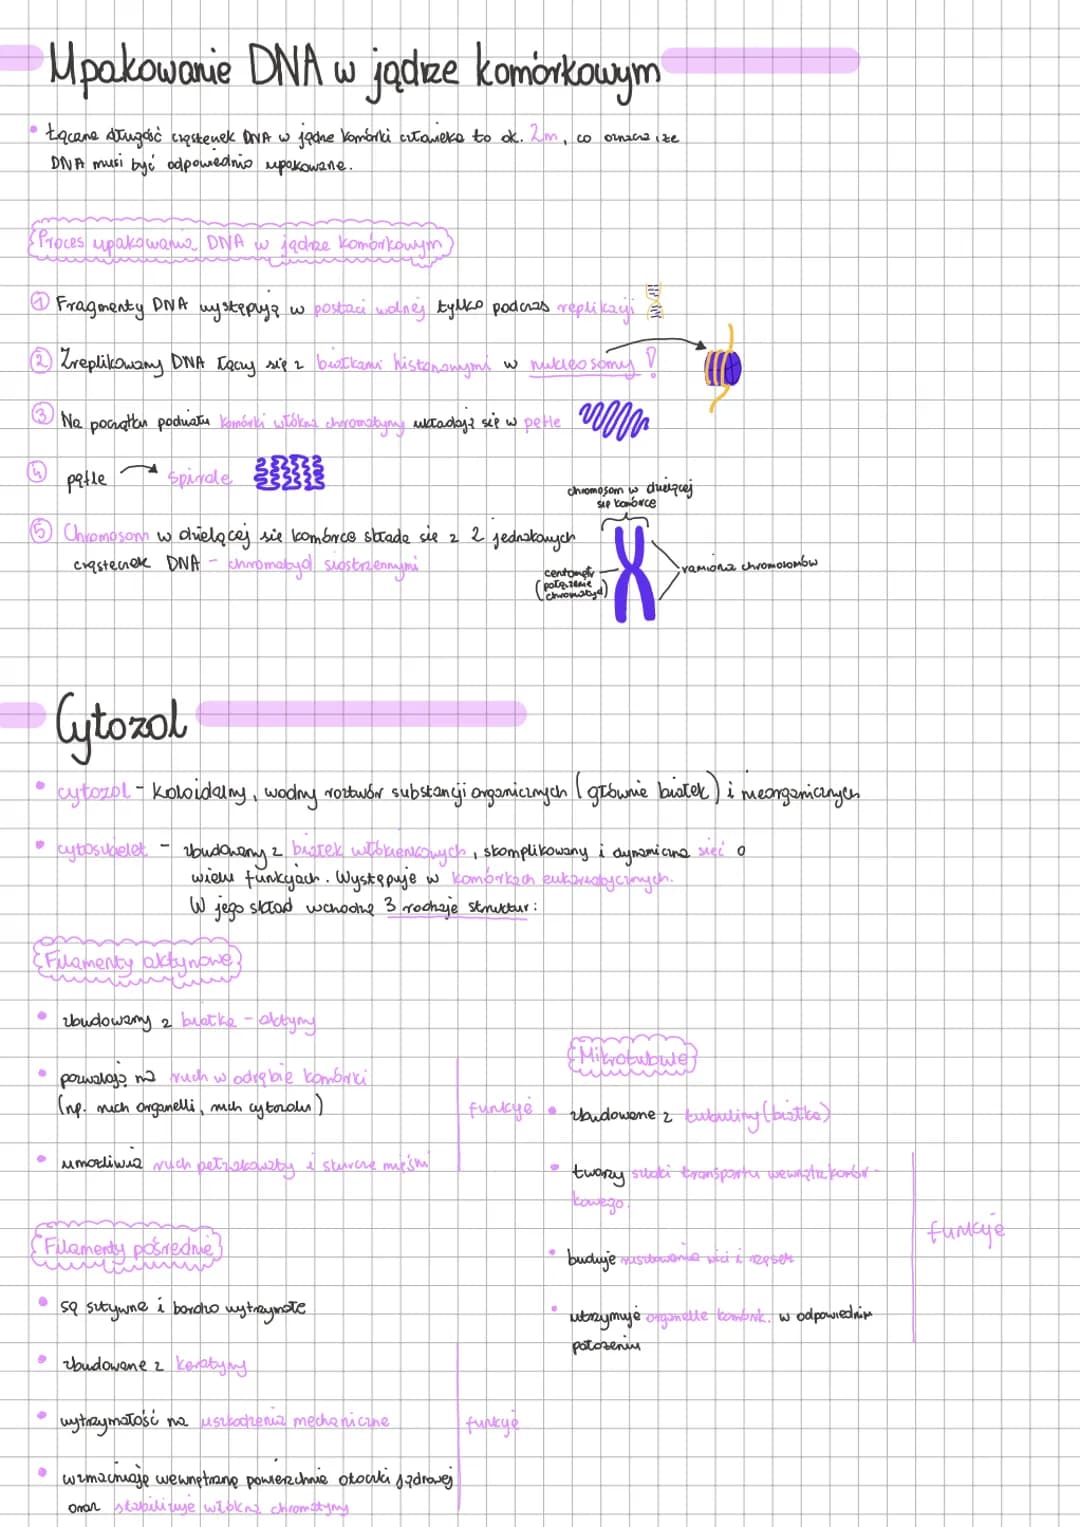 Upakowanie DNA w jądrze komórkowym
• Łączna długość cząsteczek DNA w jądrze komórki człowieka to ok. 2m, co oznacza, że
DNA musi być odpowiednio upakowane.
Proces upakowania DNA w jądrze komórkowym
① Fragmenty DNA występują w postaci wolnej tylko podczas replikacji
② Zreplikowany DNA łączy się z białkami histonowymi w nukleosomy!
③ Na początku podziału komórki włókna chromatyny układają się w pętle
④ pętle → spirale
chromosom w dzielącej
się komórce
⑤ Chromosom w dzielącej się komórce składa się z 2 jednakowych
cząsteczek DNA - chromatyd siostrzennymi
centomer
(połączenie
chromatyd)
ramiona chromosomów
Cytozol
• cytozol - koloidalny, wodny roztwór substancji organicznych (głównie białek) i nieorganicznych
• cytoszkielet - zbudowany z białek włókienkowych, skomplikowany i dynamiczna sieć o
wielu funkcjach. Występuje w komórkach eukariotycznych.
W jego skład wchodzą 3 rodzaje struktur:
Filamenty aktynowe
• zbudowany z białka - aktyny
• pozwalają na ruch w odrębie komórki
(np. ruch organelli, ruch cytozolu)
• umożliwia ruch pełzakowaty i skurcze mięśni
funkcje
Filamenty pośrednie
• są sztywne i bardzo wytrzymałe
• zbudowane z keratyny
• wytrzymałość na uszkodzenia mechaniczne
• wzmacniają wewnętrzną powierzchnie otoczki jądrowej
oraz stabilizuje włókna chromatyny
funkcje
Mikrotubule
• zbudowane z tubuliny (białka)
• tworzy szlaki transportu wewnątrzkomór-
kowego.
• buduje rusztowania wici i rzęsek
• utrzymuje organelle komórk. w odpowiednim
położeniu
funkcje